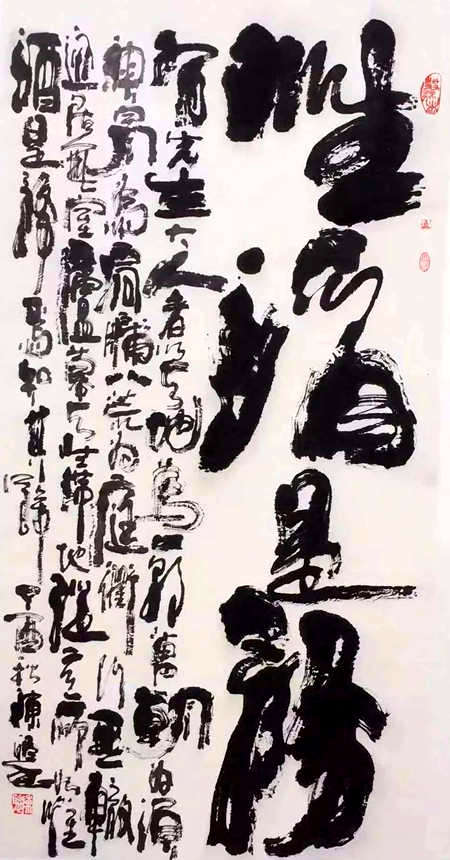 惟酒是務
有先生大人者以天地為一朝萬朝為須
臾日月為扃牖八荒為庭衢行無轍
跡居無室廬幕天席地縱意所如惟
酒是務焉知其餘 丁酉秋